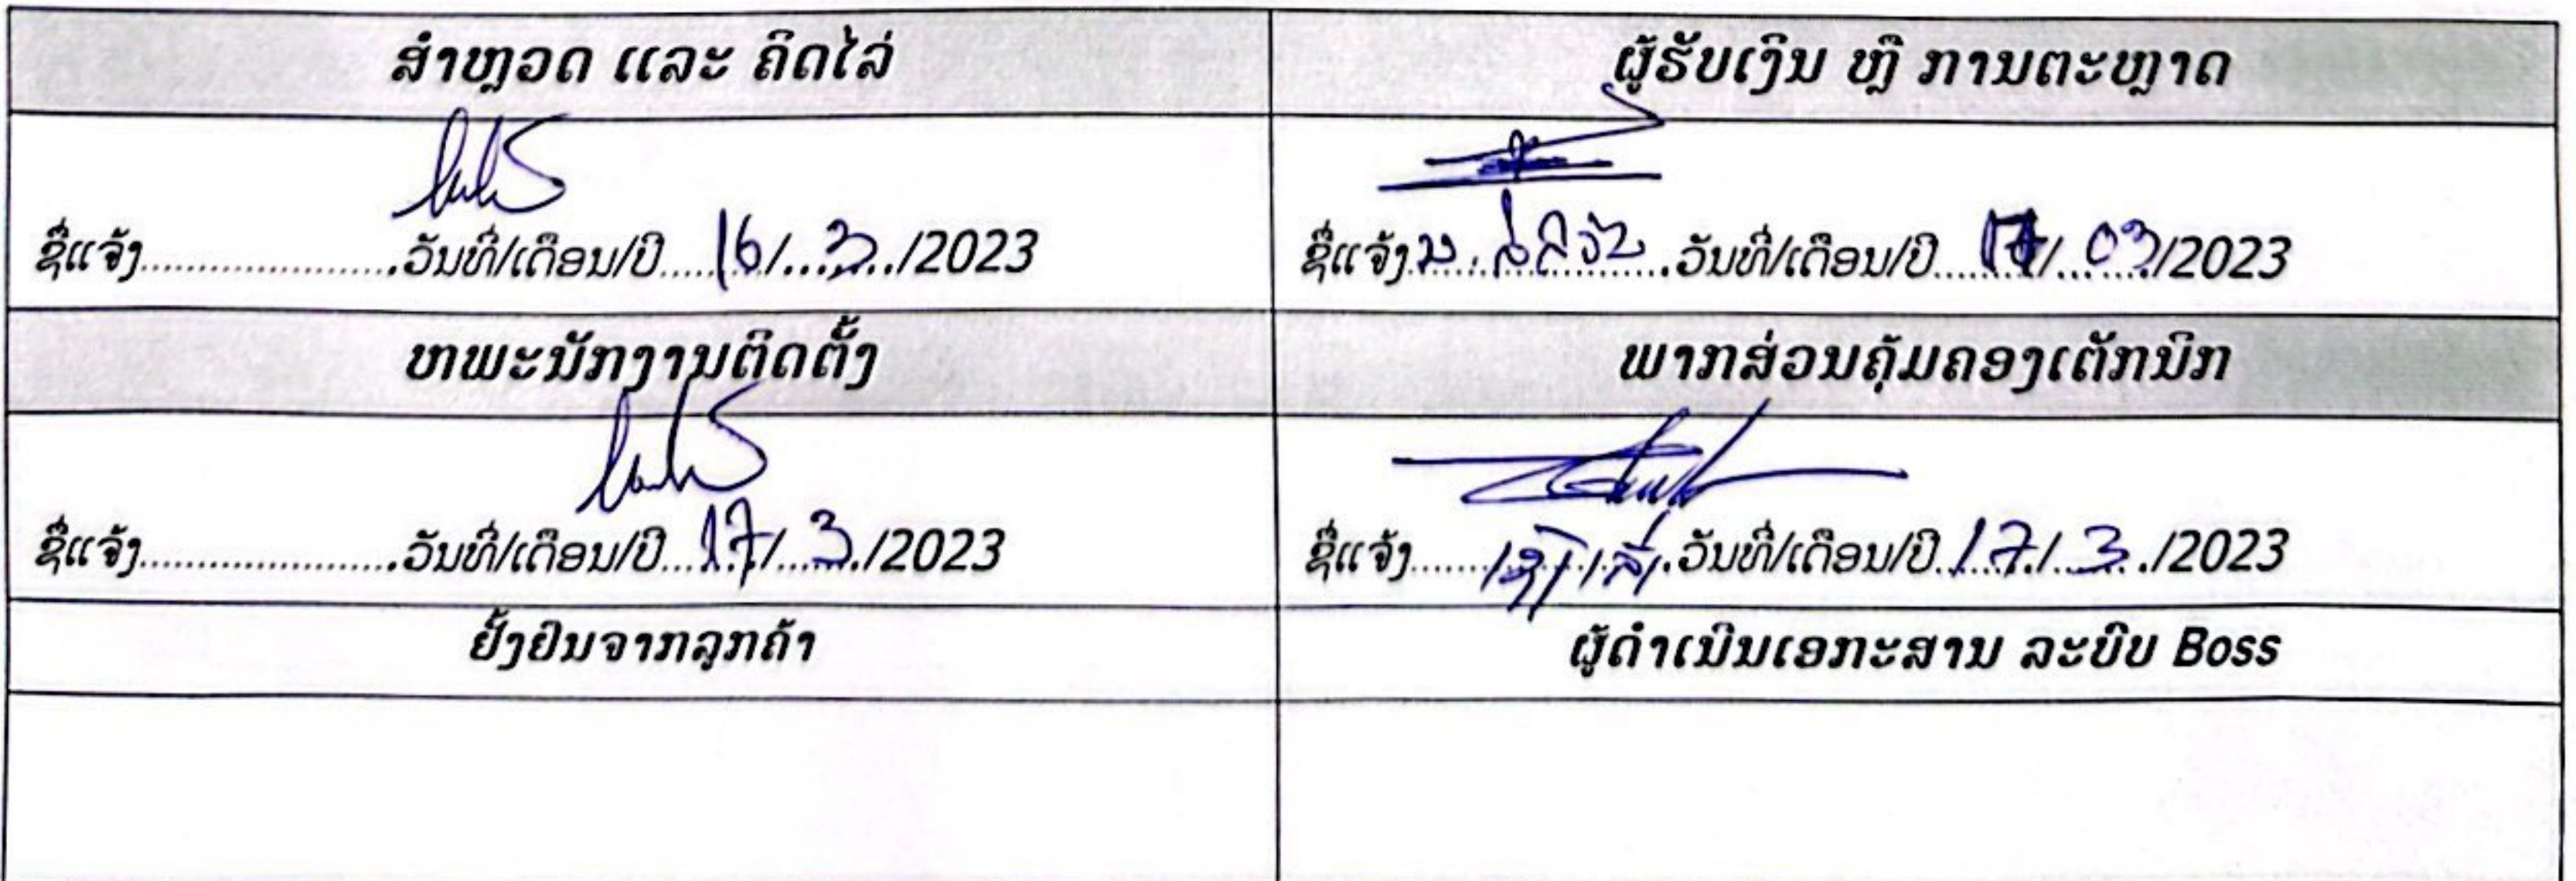 ສຳຫຼວດ ແລະ ຄິດໄລ່
ຜູ້ຮັບເງິນ ຫຼື ການຕະຫຼາດ
ຊື່ແຈ້ງ.....................ວັນທີ່/ເດືອນ/ປີ.....16/...3../2023
ຊື່ແຈ້ງ ນ. ວັນທີ່/ເດືອນ/ປີ.......17/...03/2023
ຫພະນັກງານຕິດຕັ້ງ
ພາກສ່ວນຄຸ້ມຄອງເຕັກນິກ
ຊື່ແຈ້ງ.....................ວັນທີ່/ເດືອນ/ປີ...17/...3./2023
ຊື່ແຈ້ງ.......ວັນທີ່/ເດືອນ/ປີ..17/..3../2023
ຢັ້ງຢືນຈາກລູກຄ້າ
ຜູ້ດຳເນີນເອກະສານ ລະບົບ Boss